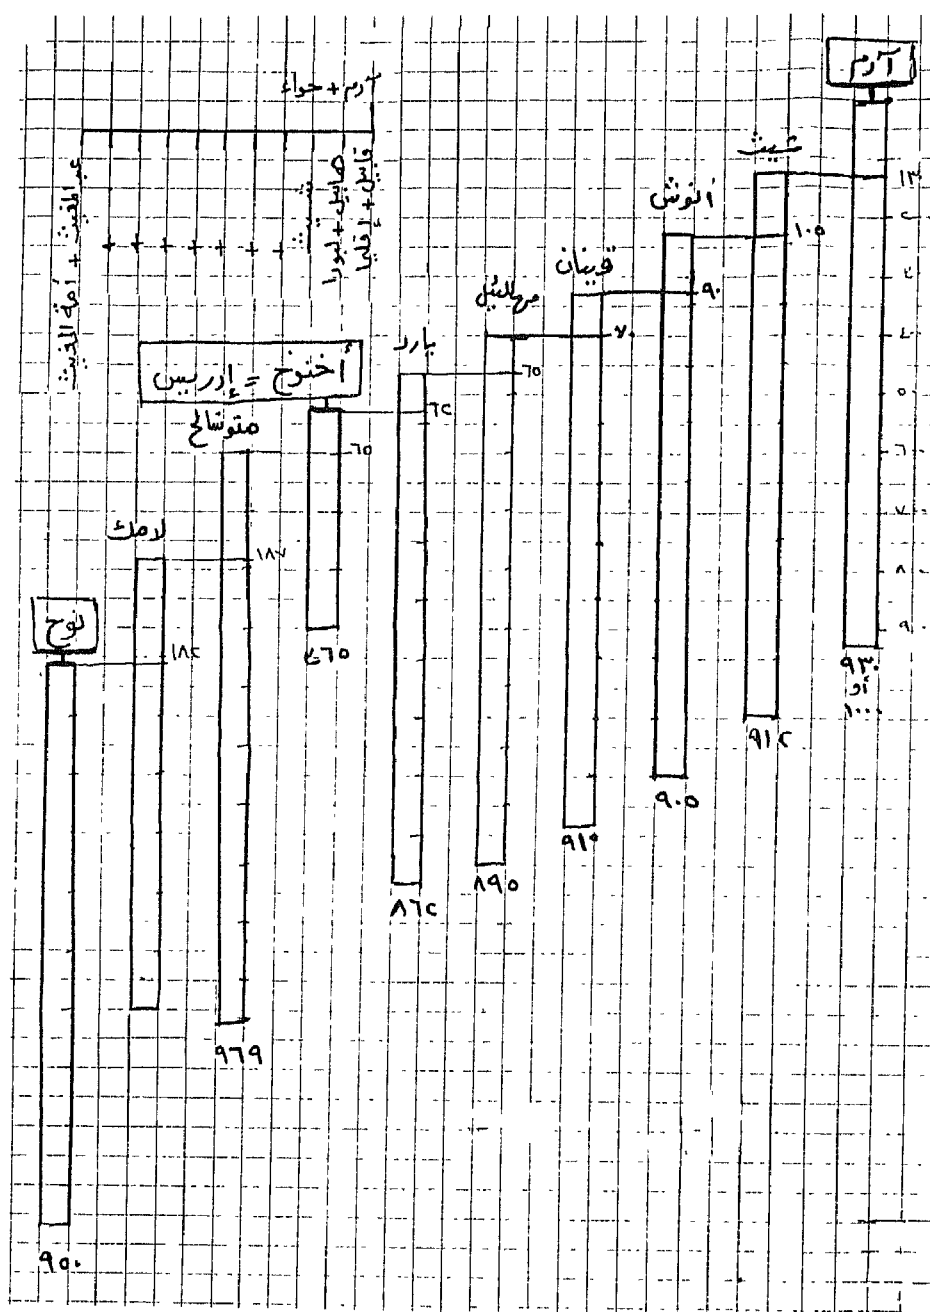 آدم
آدم + حواء
قابيل + إقليما
هابيل + ليوذا
شيث
عبد المغيث + أمة المغيث
+ + + + + +
شيث
١٣٠
أنوش
١٠٥
قينان
٩٠
مهلائيل
٧٠
يارد
٦٥
أخنوخ = إدريس
٦٢
متوشالح
٦٥
لامك
١٨٧
نوح
١٨٢
٤٠
٥٠
٦٠
٧٠
٨٠
٩٠
٩٣٠
أو
١٠٠٠
٩١٢
٩٠٥
٩١٠
٨٩٥
٨٦٢
٣٦٥
٩٦٩
٩٥٠